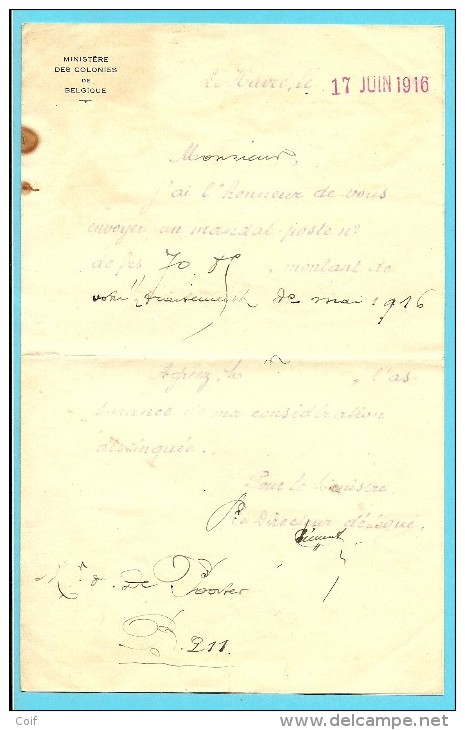 MINISTÈRE
DES COLONIES
DE
BELGIQUE
Le Havre, le 17 JUIN 1916
Monsieur,
j'ai l'honneur de vous
envoyer un mandat-poste nº
de frs 70.85, montant de
votre traitement de mai 1916
Agréez, , l'as-
surance de ma considération
distinguée.
Pour le Ministre
Le Directeur délégué,
Mr. de Poorter
B. 211.
Coif
delcampe.net